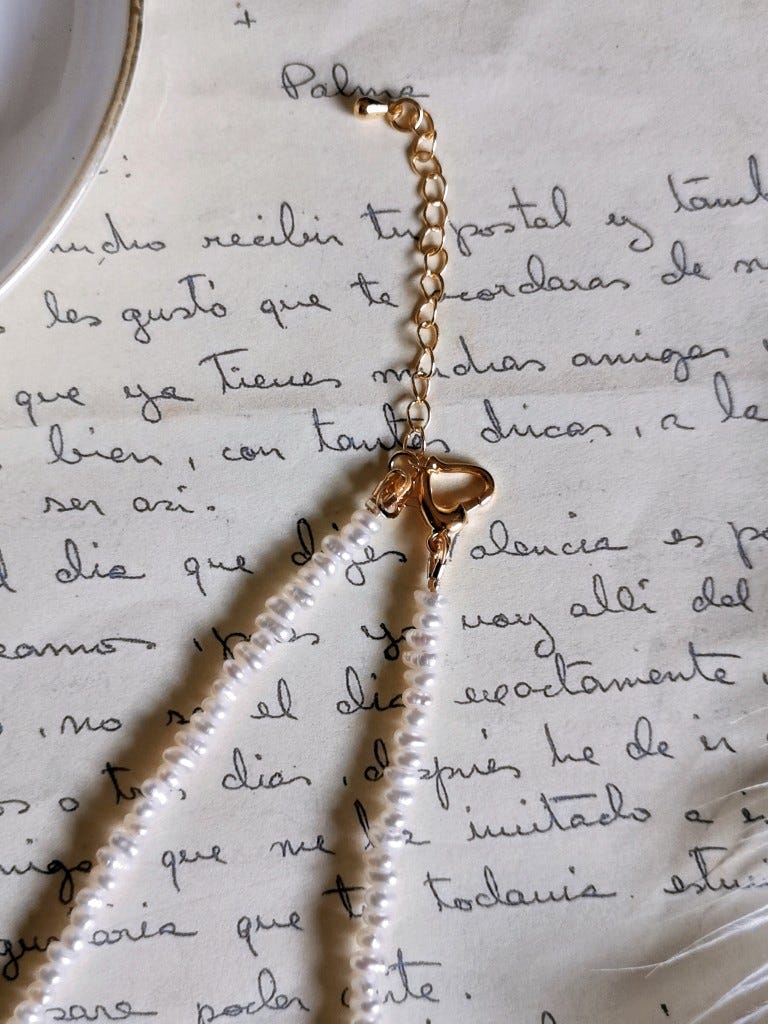 Palma
mucho recibir tu postal y tamb
les gustó que te acordaras de
que ya tienes muchas amigas
bien, con tantas chicas, a la
ser así.
dia que dices Valencia es po
eamos, pues yo voy allí del
, no se el dia exactamente,
s o tres dias, después he de ir
amigo que me ha invitado a
que tu todavia estu
sara poder irte.